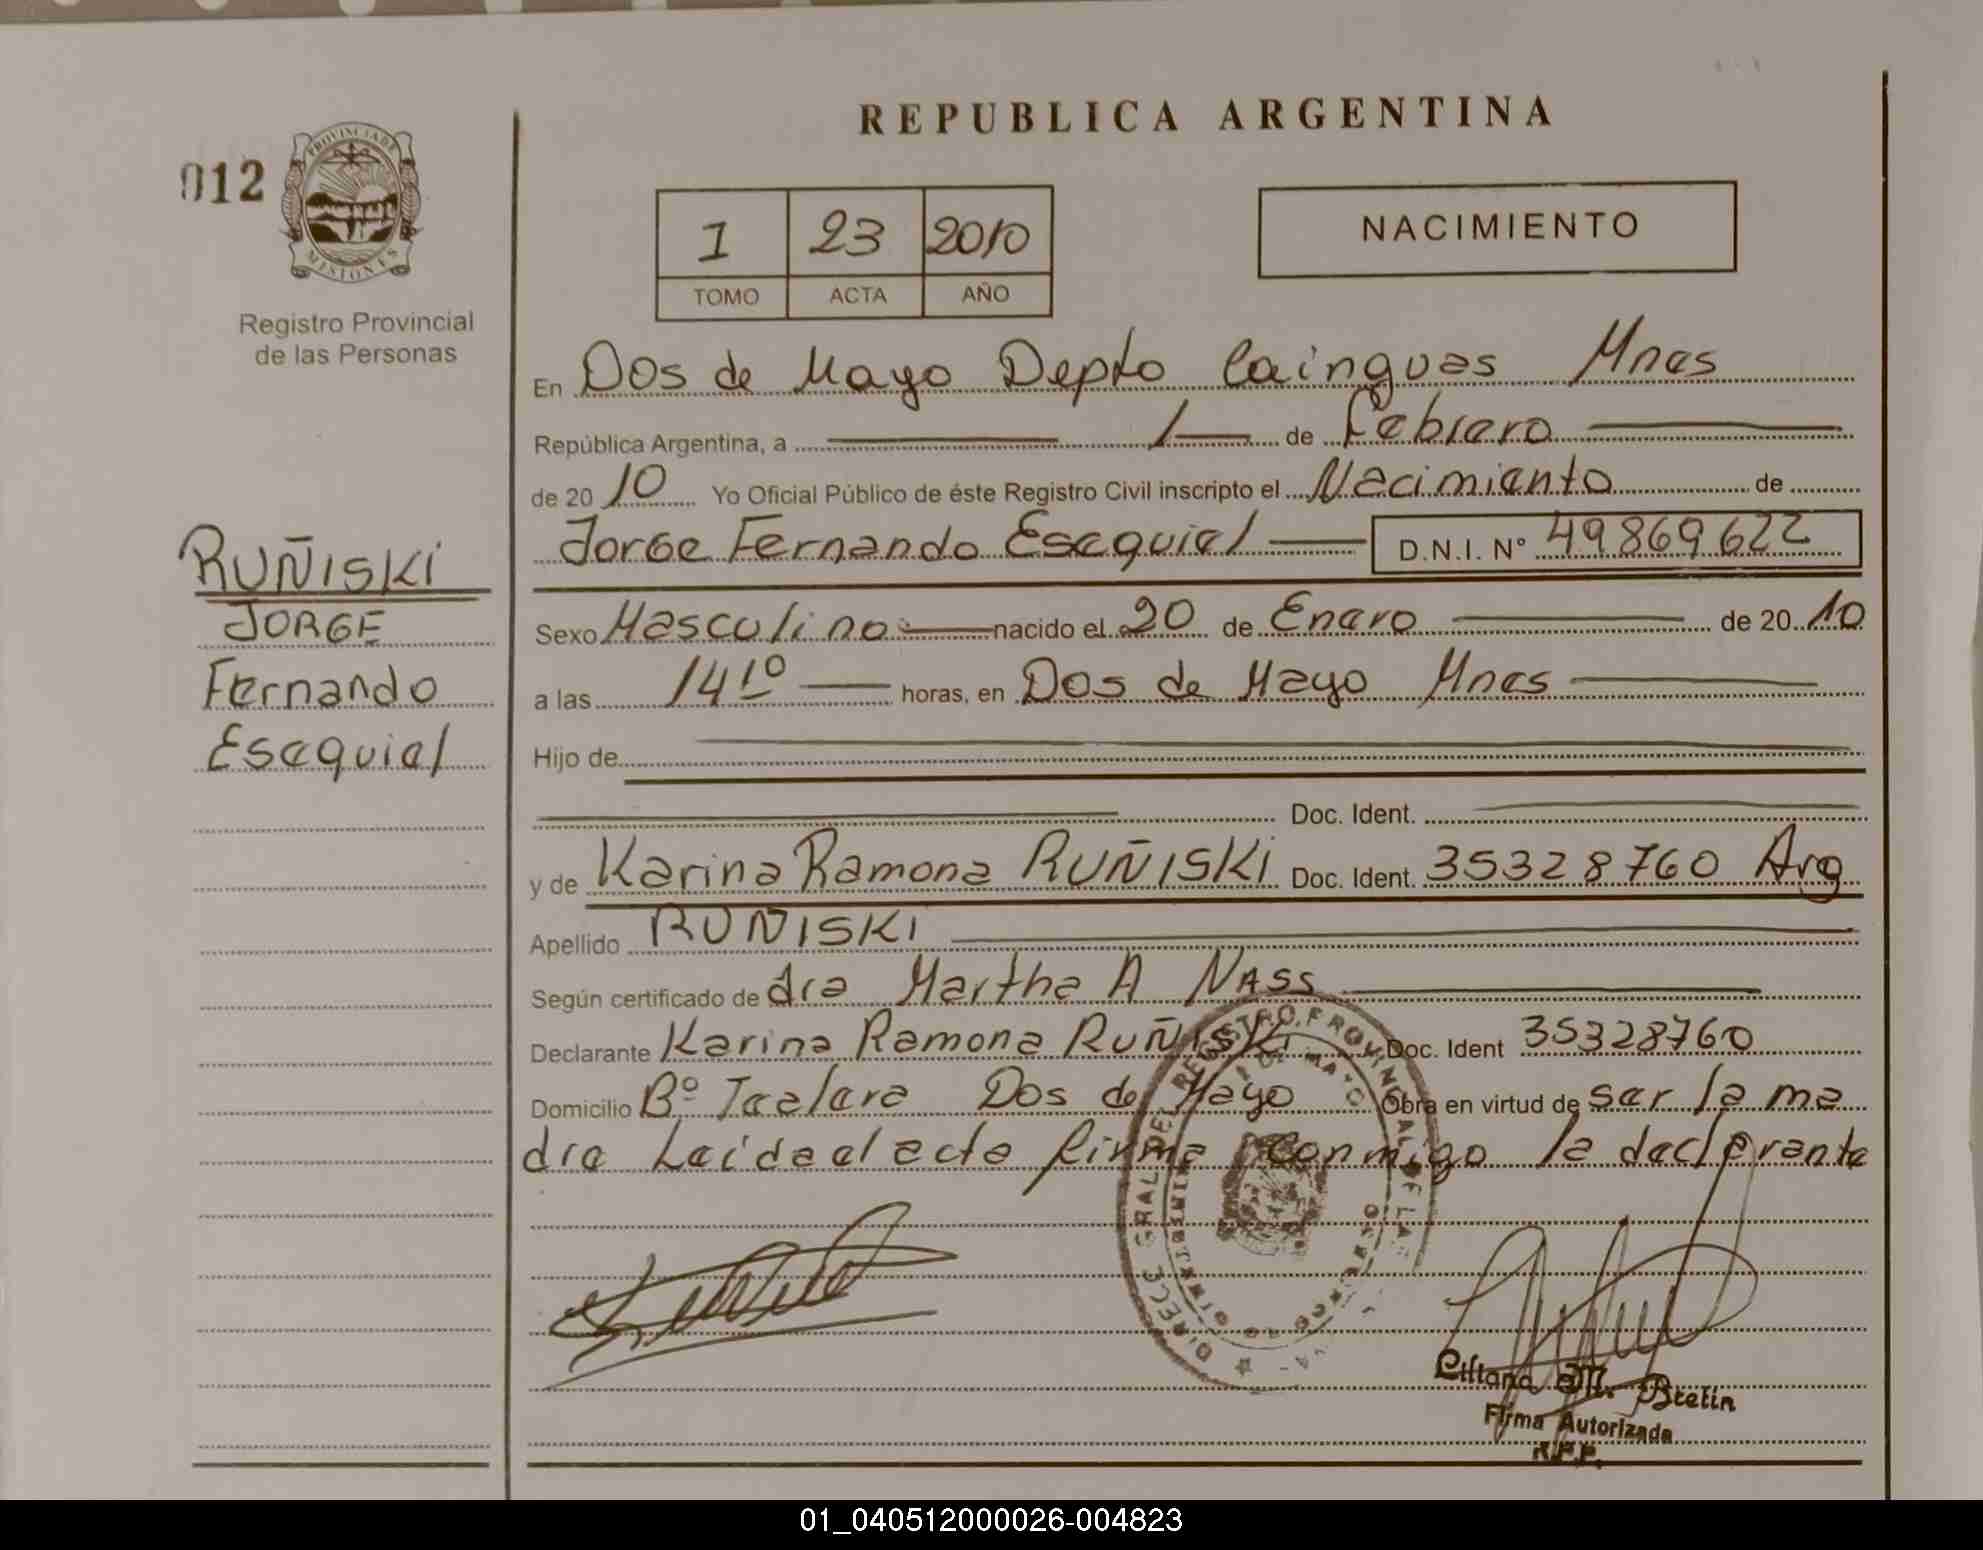 REPUBLICA ARGENTINA
012
PROVINCIA DE
MISIONES
Registro Provincial
de las Personas
1 23 2010
TOMO ACTA AÑO
NACIMIENTO
RUÑISKI
JORGE
Fernando
Esequiel
En Dos de Mayo Depto Cainguas Mnes
República Argentina, a 1 de Febrero
de 20 10 Yo Oficial Público de éste Registro Civil inscripto el Nacimiento de
Jorge Fernando Esequiel D.N.I. N° 49869622
Sexo Masculino nacido el 20 de Enero de 20 10
a las 14 10 horas, en Dos de Mayo Mnes
Hijo de
Doc. Ident.
y de Karina Ramona RUÑISKI Doc. Ident. 35328760 Arg
Apellido RUÑISKI
Según certificado de dra Martha A NASS
Declarante Karina Ramona RUÑISKI Doc. Ident 35328760
Domicilio Bº Dos de Mayo Obra en virtud de ser la ma
dre Leida el acta firma conmigo la declarante
Liliana M. Bretin
Firma Autorizada
R.P.P.
01_040512000026-004823